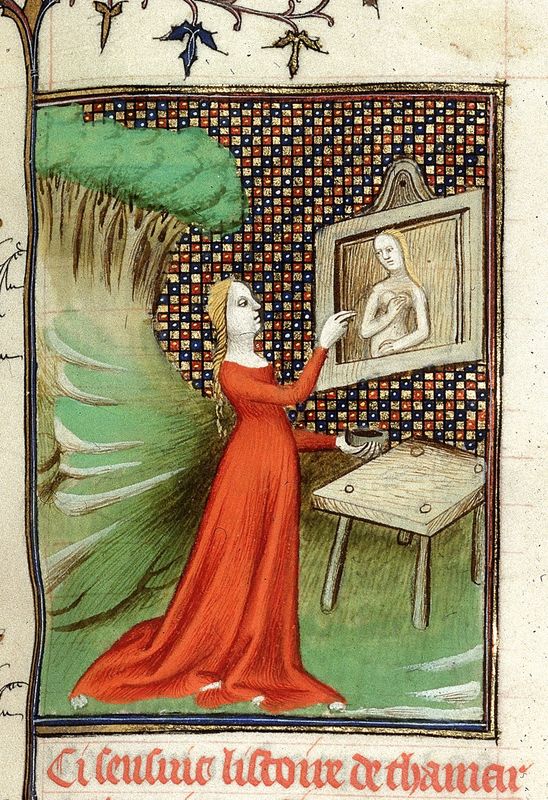 Ci sensuit listoire de thamar